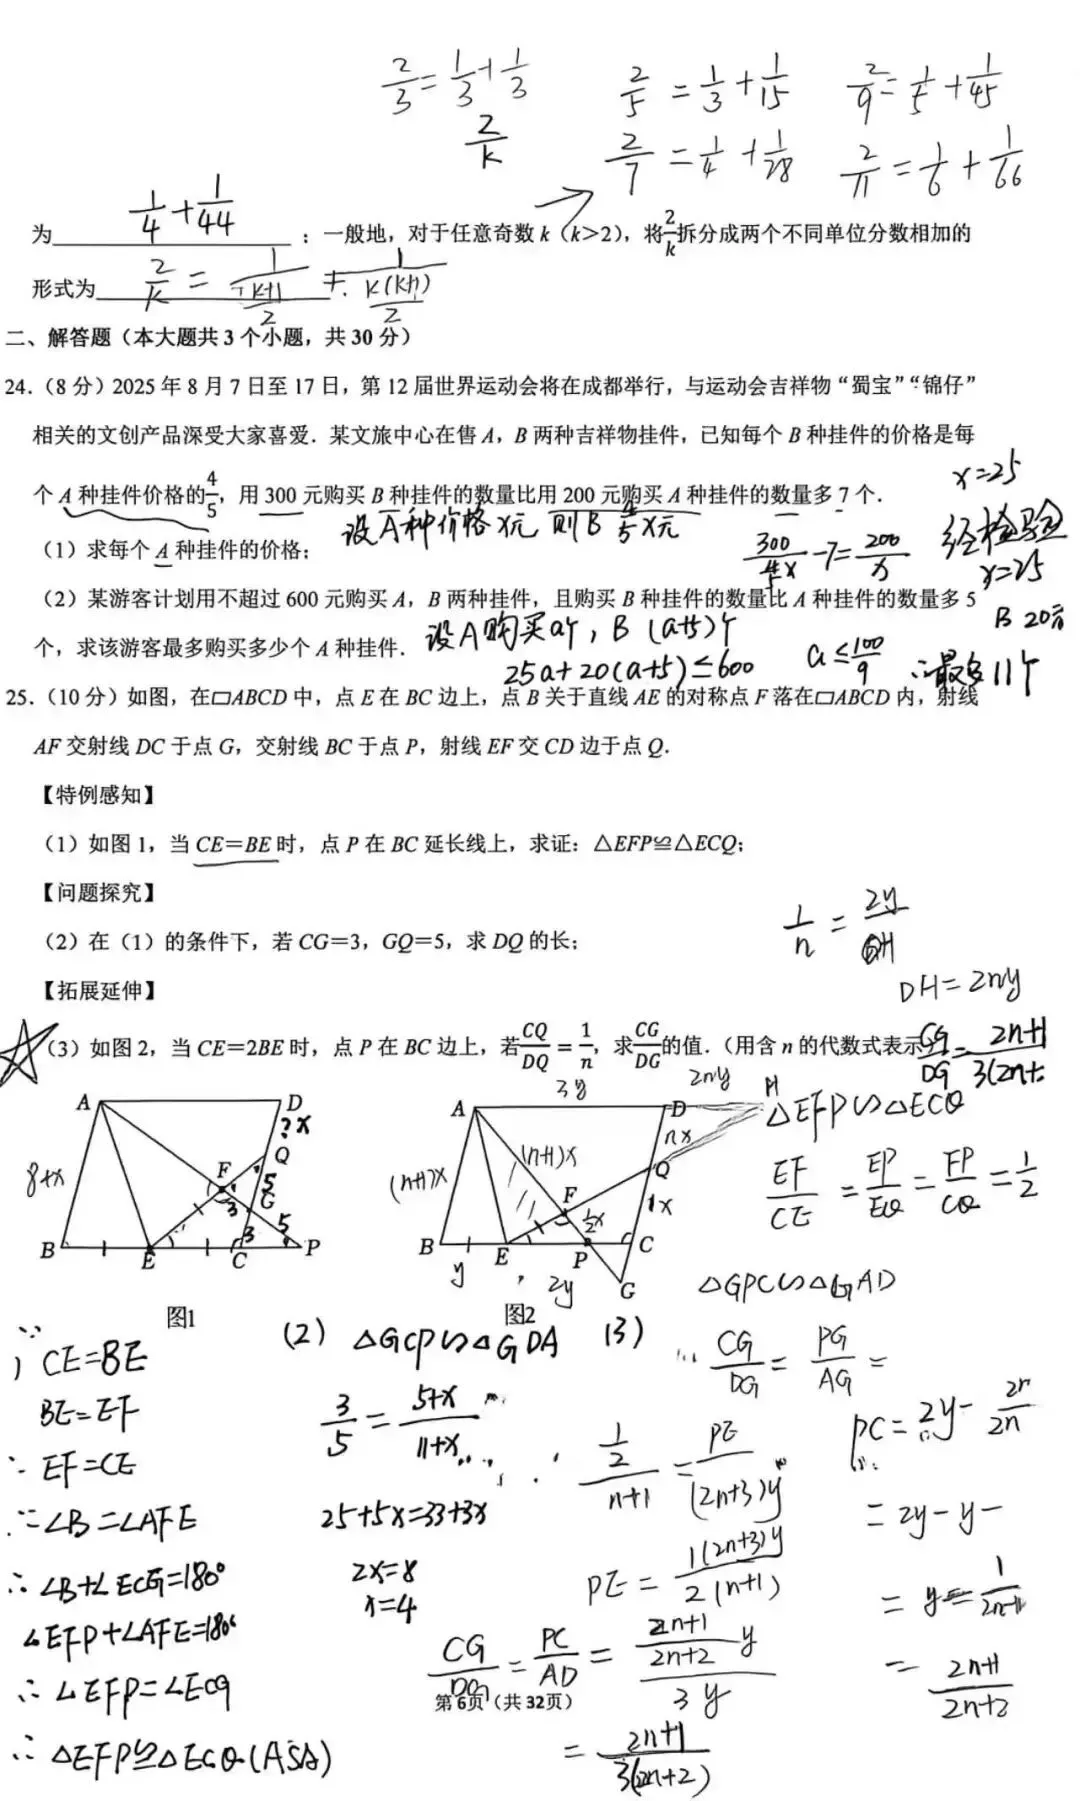 2/3 = 1/3 + 1/3
2/5 = 1/3 + 1/15
2/9 = 1/5 + 1/45
2/k
2/7 = 1/4 + 1/28
2/11 = 1/6 + 1/66
为 1/4 + 1/44 ;一般地,对于任意奇数 k(k>2),将2/k拆分成两个不同单位分数相加的
形式为 2/k = 1/((k+1)/2) + 1/(k(k+1)/2)
二、解答题(本大题共3个小题,共30分)
24.(8分)2025年8月7日至17日,第12届世界运动会将在成都举行,与运动会吉祥物“蜀宝”“锦仔”
相关的文创产品深受大家喜爱.某文旅中心在售A,B两种吉祥物挂件,已知每个B种挂件的价格是每
个A种挂件价格的4/5,用300元购买B种挂件的数量比用200元购买A种挂件的数量多7个.
x=25
设A种价格x元 则B 4/5 x元
(1)求每个A种挂件的价格;
300/(4/5 x) - 7 = 200/x
经检验
x=25
(2)某游客计划用不超过600元购买A,B两种挂件,且购买B种挂件的数量比A种挂件的数量多5
B 20元
个,求该游客最多购买多少个A种挂件.
设A购买a个,B (a+5)个
25a+20(a+5)≤600
a≤100/9
∴最多11个
25.(10分)如图,在□ABCD中,点E在BC边上,点B关于直线AE的对称点F落在□ABCD内,射线
AF交射线DC于点G,交射线BC于点P,射线EF交CD边于点Q.
【特例感知】
(1)如图1,当CE=BE时,点P在BC延长线上,求证:△EFP≌△ECQ;
【问题探究】
1/n = 2y/DH
(2)在(1)的条件下,若CG=3,GQ=5,求DQ的长;
DH=2ny
【拓展延伸】
(3)如图2,当CE=2BE时,点P在BC边上,若CQ/DQ=1/n,求CG/DG的值.(用含n的代数式表示
CG/DG = 2n+1/3(2n+
A D ?x Q 5 F G 3 3 5 8+x B E C P
图1
A 3y D 2ny H nx (n+1)x (n+1)x Q 1x F 1/2x B E P C G y 2y
图2
△EFP∽△ECQ
EF/CE = EP/EQ = FP/CQ = 1/2
△GPC∽△GAD
∵
) CE=BE
BE=EF
∴ EF=CE
∵∠B=∠AFE
∴ ∠B+∠ECG=180°
∠EFP+∠AFE=180°
∴ ∠EFP=∠ECQ
∴ △EFP≌△ECQ(ASA)
(2) △GCP∽△GDA
3/5 = 5+x/11+x
25+5x=33+3x
2x=8
x=4
(3)
CG/DG = PG/AG =
(1/2)/(n+1) = PE/(2n+3)y
PE = 1(2n+3)y/2(n+1)
CG/DG = PC/AD = (2n+1/2n+2 y)/3y
= 2n+1/3(2n+2)
PC=2y-
=2y-y-
=
= 2n+1/2n+2
第6页(共32页)